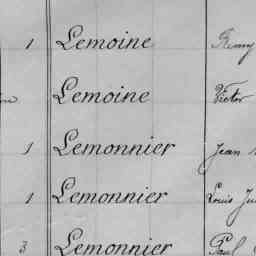 1 Lemoine Remy
Lemoine Victor
1 Lemonnier Jean
1 Lemonnier Louis
3 Lemonnier Paul